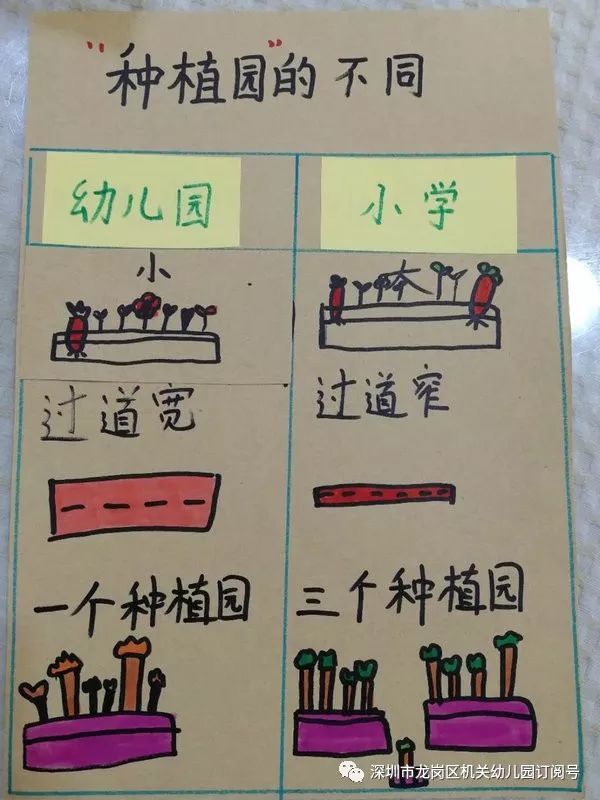 "种植园"的不同
幼儿园
小学
小
本
过道宽
过道窄
一个种植园
三个种植园
深圳市龙岗区机关幼儿园订阅号